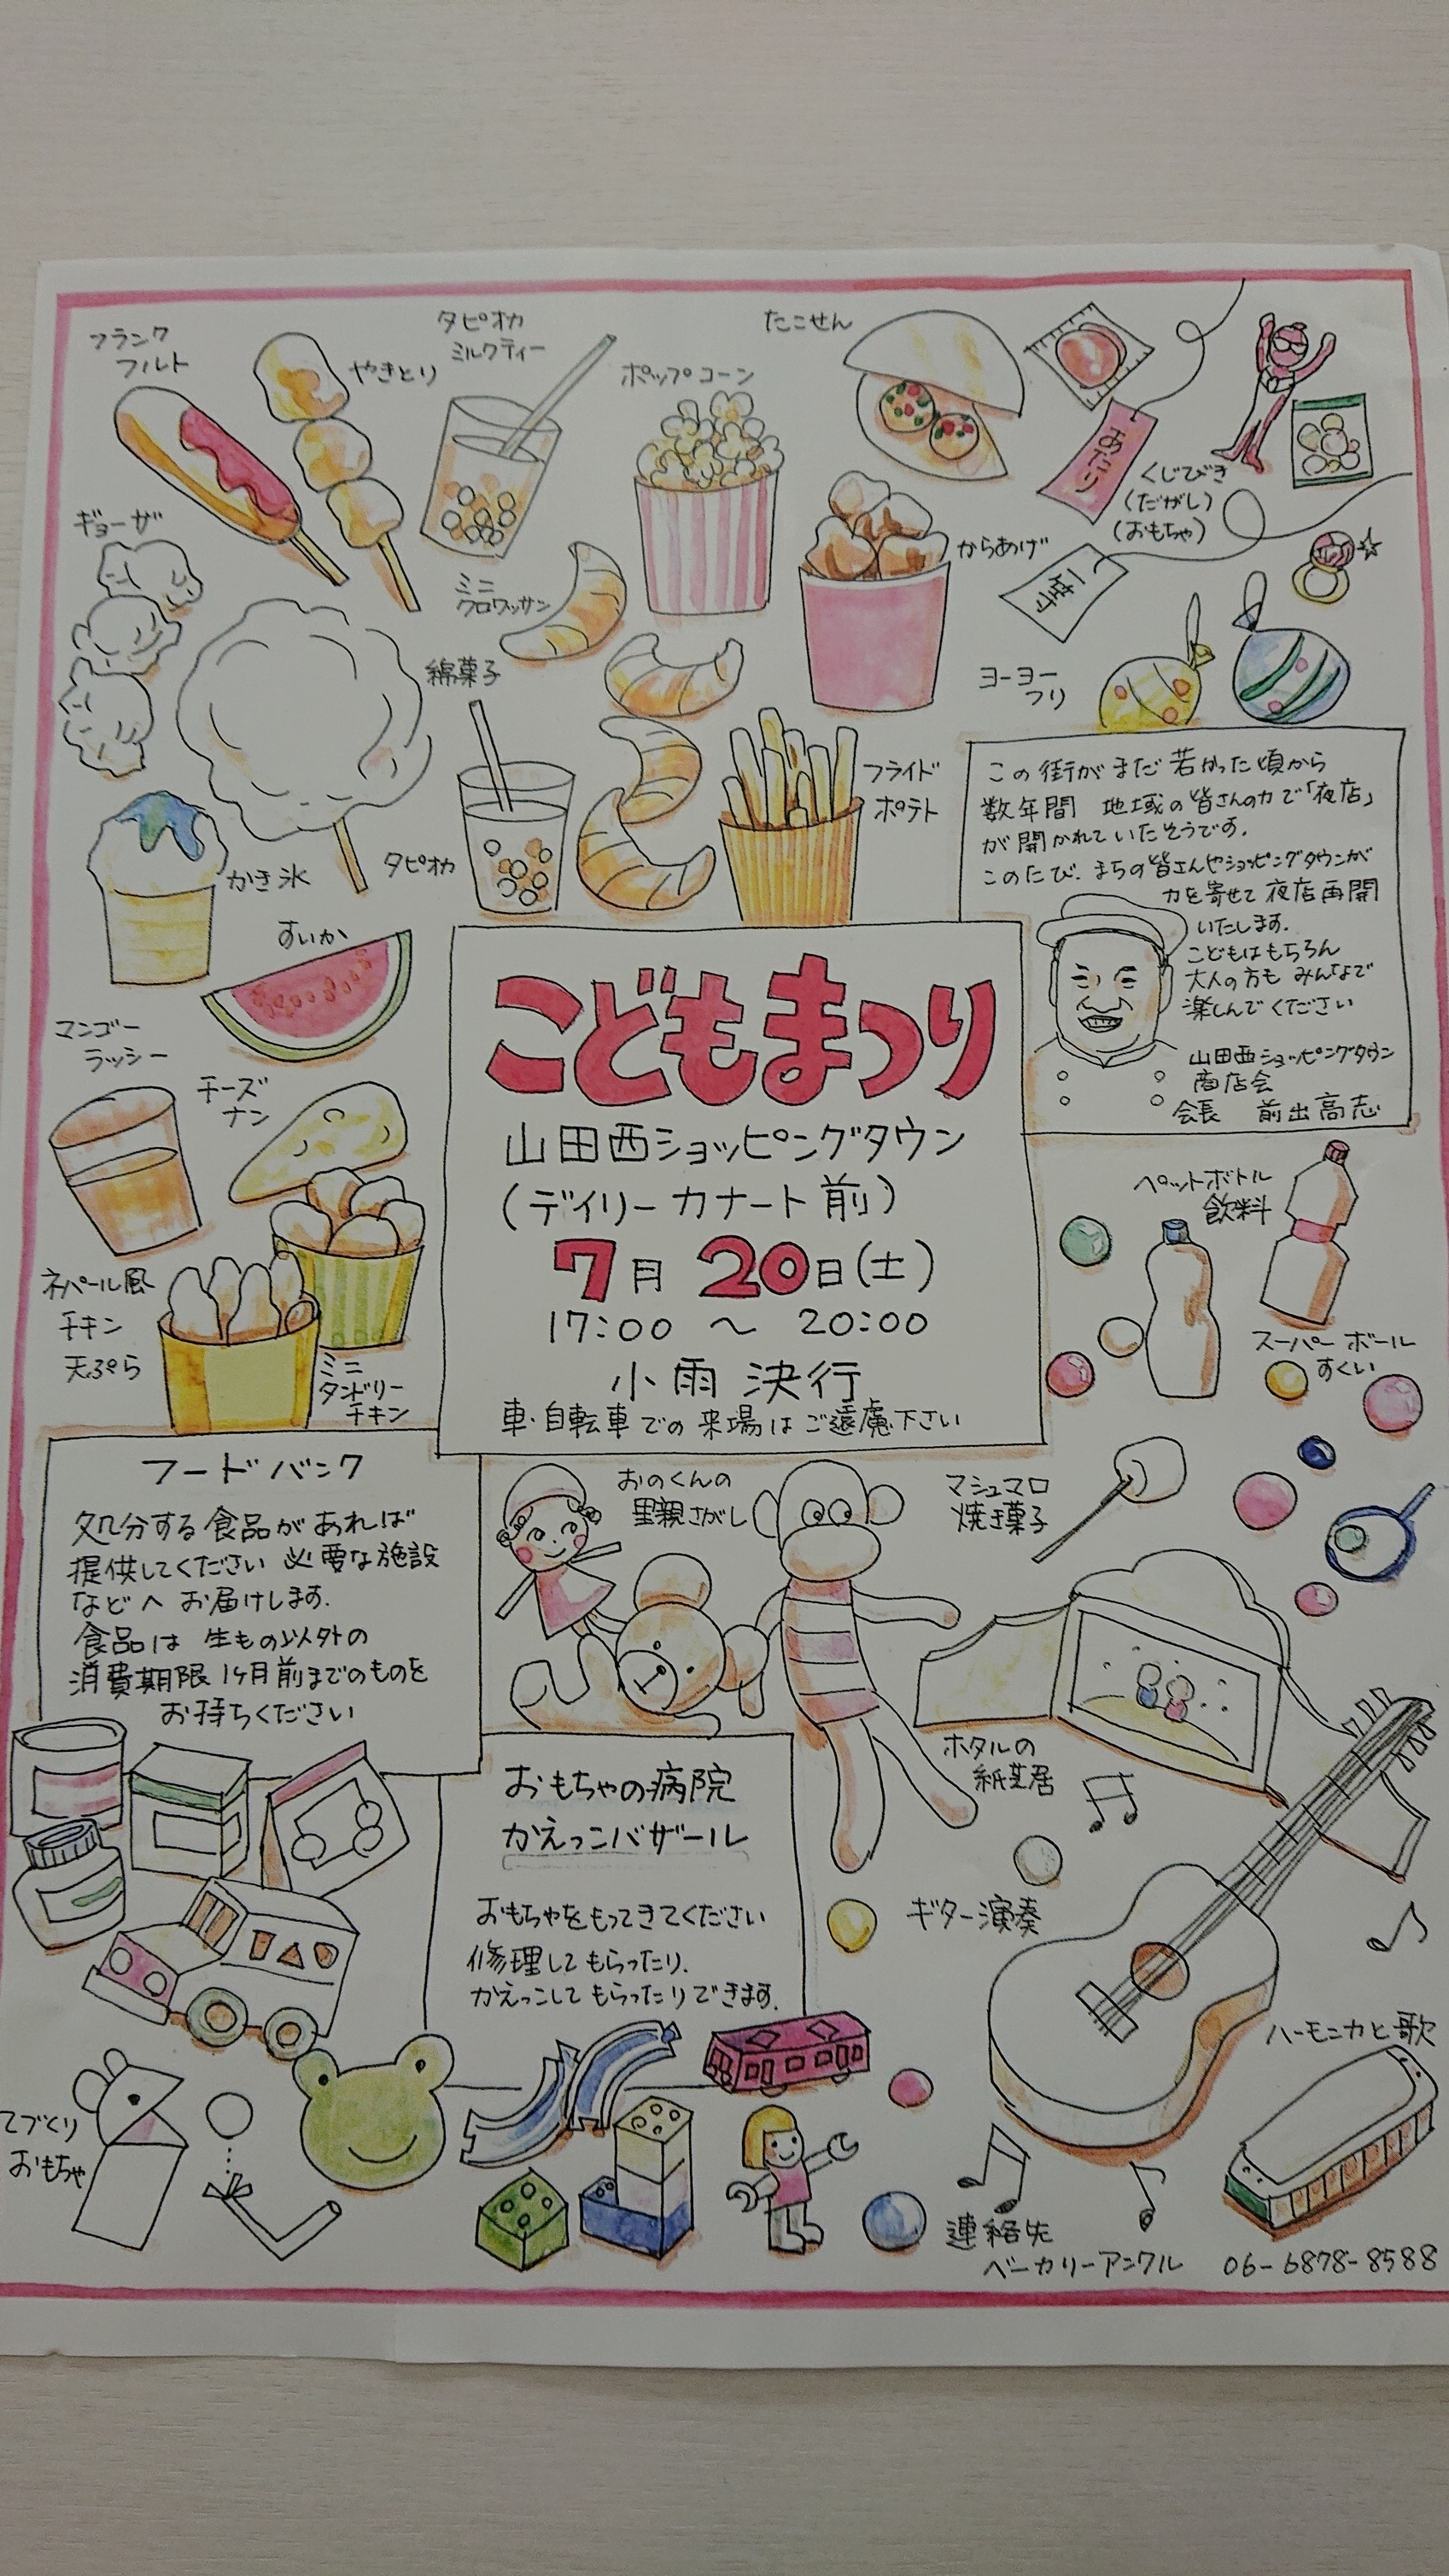 フランク
フルト
やきとり
タピオカ
ミルクティー
ポップコーン
たこせん
あたり
くじびき
(だがし)
(おもちゃ)
ギョーザ
ミニ
クロワッサン
からあげ
一等
綿菓子
ヨーヨー
フリ
フライド
ポテト
かき氷
タピオカ
この街がまだ若かった頃から
数年間 地域の皆さんの力で「夜店」
が開かれていたそうです.
このたび、まちの皆さんやショッピングタウンが
力を寄せて夜店再開
いたします.
こどもはもちろん
大人の方も みんなで
楽しんでください
山田西ショッピングタウン
商店会
会長 前出高志
すいか
マンゴー
ラッシー
チーズ
ナン
ネパール風
チキン
天ぷら
ミニ
タンドリー
チキン
こどもまつり
山田西ショッピングタウン
(デイリーカナート前)
7月 20日(土)
17:00 〜 20:00
小雨決行
車・自転車での来場はご遠慮下さい
ペットボトル
飲料
スーパーボール
すくい
フードバンク
処分する食品があれば
提供してください 必要な施設
などへ お届けします.
食品は 生もの以外の
消費期限1ヶ月前までのものを
お持ちください
おのくんの
里親さがし
マシュマロ
焼き菓子
ホタルの
紙芝居
おもちゃの病院
かえっこバザール
おもちゃをもってきてください
修理してもらったり.
かえっこしてもらったりできます.
ギター演奏
ハーモニカと歌
てづくり
おもちゃ
連絡先
ベーカリーアンクル 06-6878-8588